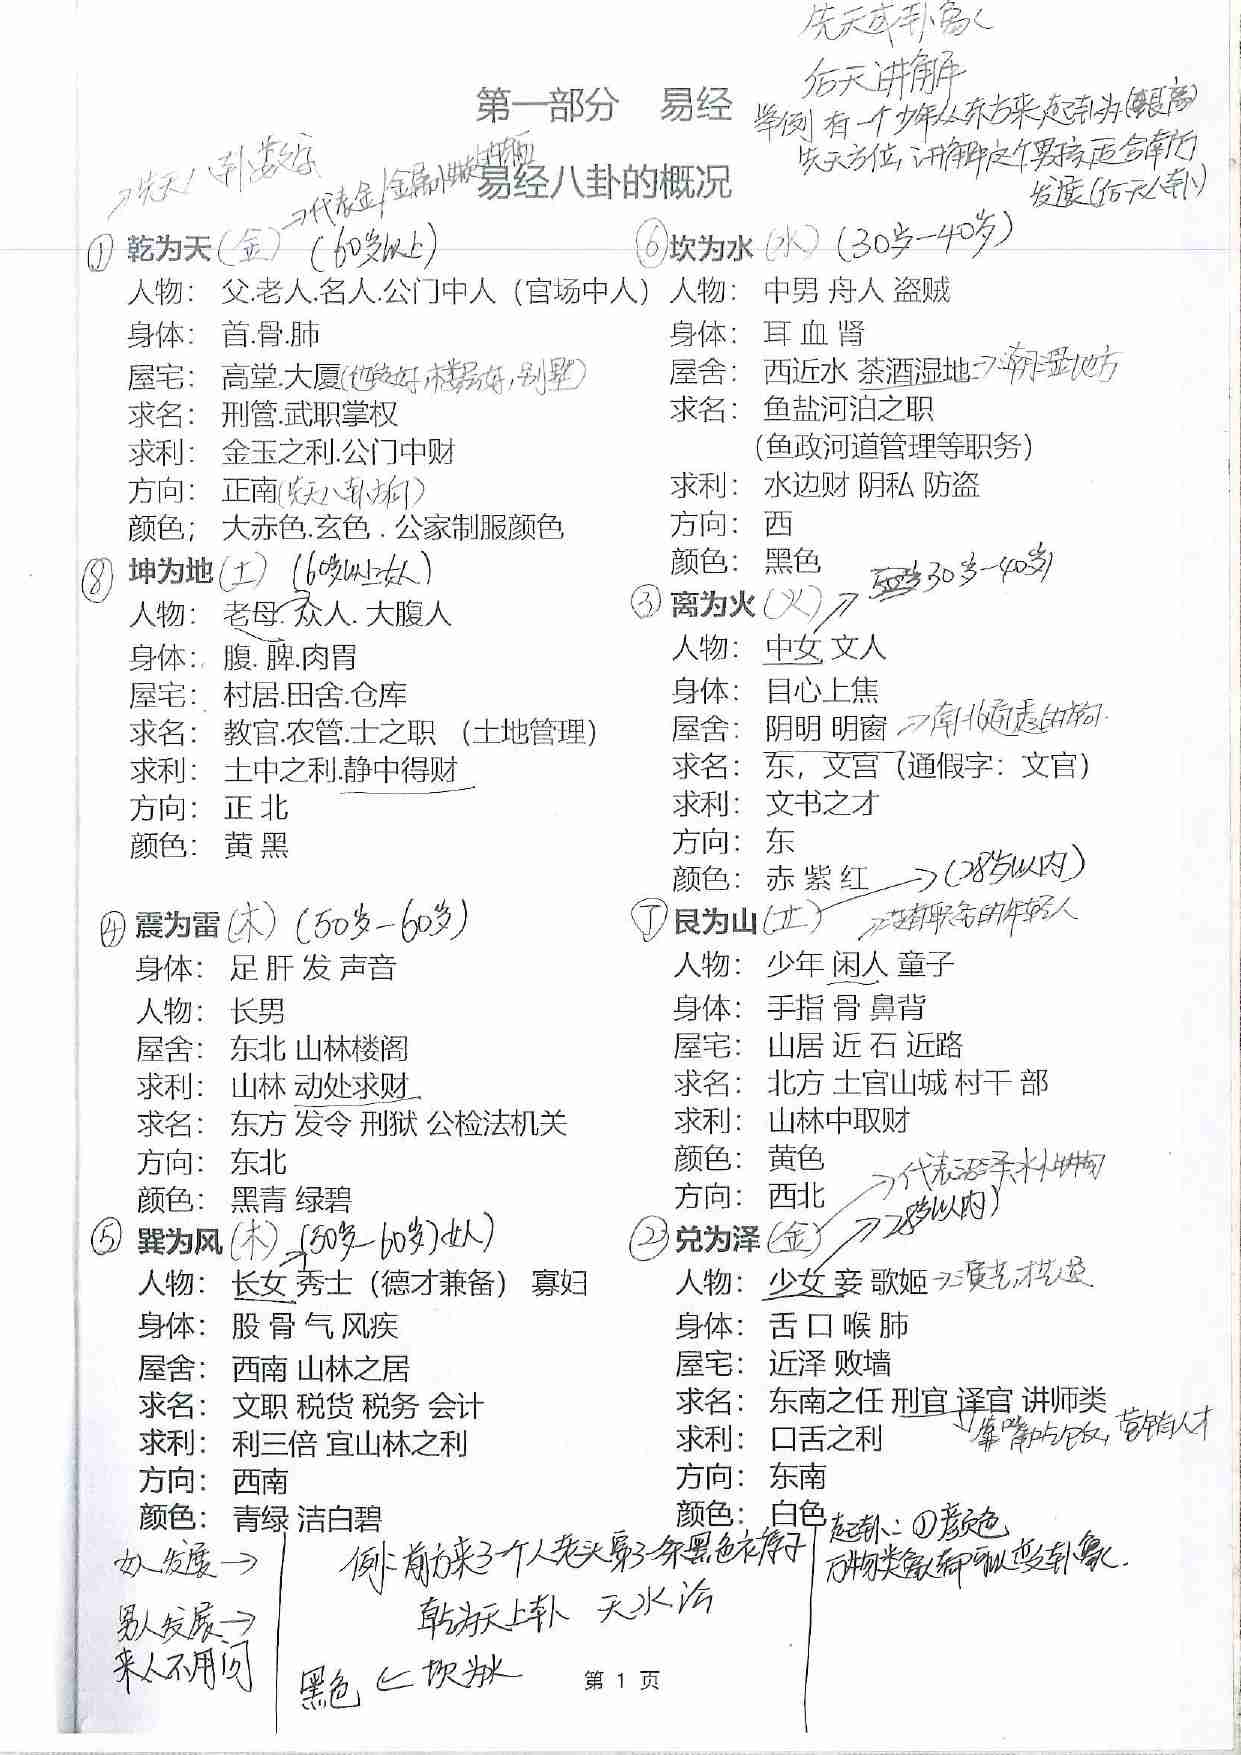 先天成卦象
后天讲解
第一部分 易经
举例 有一个少年从东方来起卦为
先天方位，讲解这个男孩适合南方
发展(后天八卦)
→先天八卦数字
→代表金
易经八卦的概况
① 乾为天(金) (60岁以上)
人物： 父.老人.名人.公门中人（官场中人）
身体： 首.骨.肺
屋宅： 高堂.大厦(地段好,楼层好,别墅)
求名： 刑管.武职掌权
求利： 金玉之利.公门中财
方向： 正南(先天八卦方向)
颜色； 大赤色.玄色 . 公家制服颜色
⑧ 坤为地(土) (60岁以上女人)
人物： 老母. 众人. 大腹人
身体： 腹. 脾.肉胃
屋宅： 村居.田舍.仓库
求名： 教官.农管.士之职 （土地管理）
求利： 土中之利.静中得财
方向： 正 北
颜色： 黄 黑
④ 震为雷(木) (50岁-60岁)
身体： 足 肝 发 声音
人物： 长男
屋舍： 东北 山林楼阁
求利： 山林 动处求财
求名： 东方 发令 刑狱 公检法机关
方向： 东北
颜色： 黑青 绿碧
⑤ 巽为风(木) (50岁-60岁)女人)
人物： 长女 秀士（德才兼备） 寡妇
身体： 股 骨 气 风疾
屋舍： 西南 山林之居
求名： 文职 税货 税务 会计
求利： 利三倍 宜山林之利
方向： 西南
颜色： 青绿 洁白碧
⑥ 坎为水(水) (30岁-40岁)
人物： 中男 舟人 盗贼
身体： 耳 血 肾
屋舍： 西近水 茶酒湿地→潮湿地方
求名： 鱼盐河泊之职
（鱼政河道管理等职务）
求利： 水边财 阴私 防盗
方向： 西
颜色： 黑色
③ 离为火(火) 30岁-40岁)
人物： 中女 文人
身体： 目心上焦
屋舍： 阴明 明窗 →南北通透的房间
求名： 东，文宫（通假字：文官）
求利： 文书之才
方向： 东
颜色： 赤 紫 红
→(28岁以内)
⑦ 艮为山(土) →没有职务的年轻人
人物： 少年 闲人 童子
身体： 手指 骨 鼻背
屋宅： 山居 近 石 近路
求名： 北方 土官山城 村干 部
求利： 山林中取财
颜色： 黄色
方向： 西北
→代表沼泽
→28岁以内)
② 兑为泽(金)
人物： 少女 妾 歌姬→演艺,才艺
身体： 舌 口 喉 肺
屋宅： 近泽 败墙
求名： 东南之任 刑官 译官 讲师类
靠嘴吃饭，营销人才
求利： 口舌之利
方向： 东南
颜色： 白色
起卦：①颜色
万物类象都可以变卦象.
女人发展→
男人发展→
来人不用问
例：前方来了一个人老头穿了一条黑色衣裤子
乾为天上卦 天水讼
黑色 ← 坎为水
第 1 页